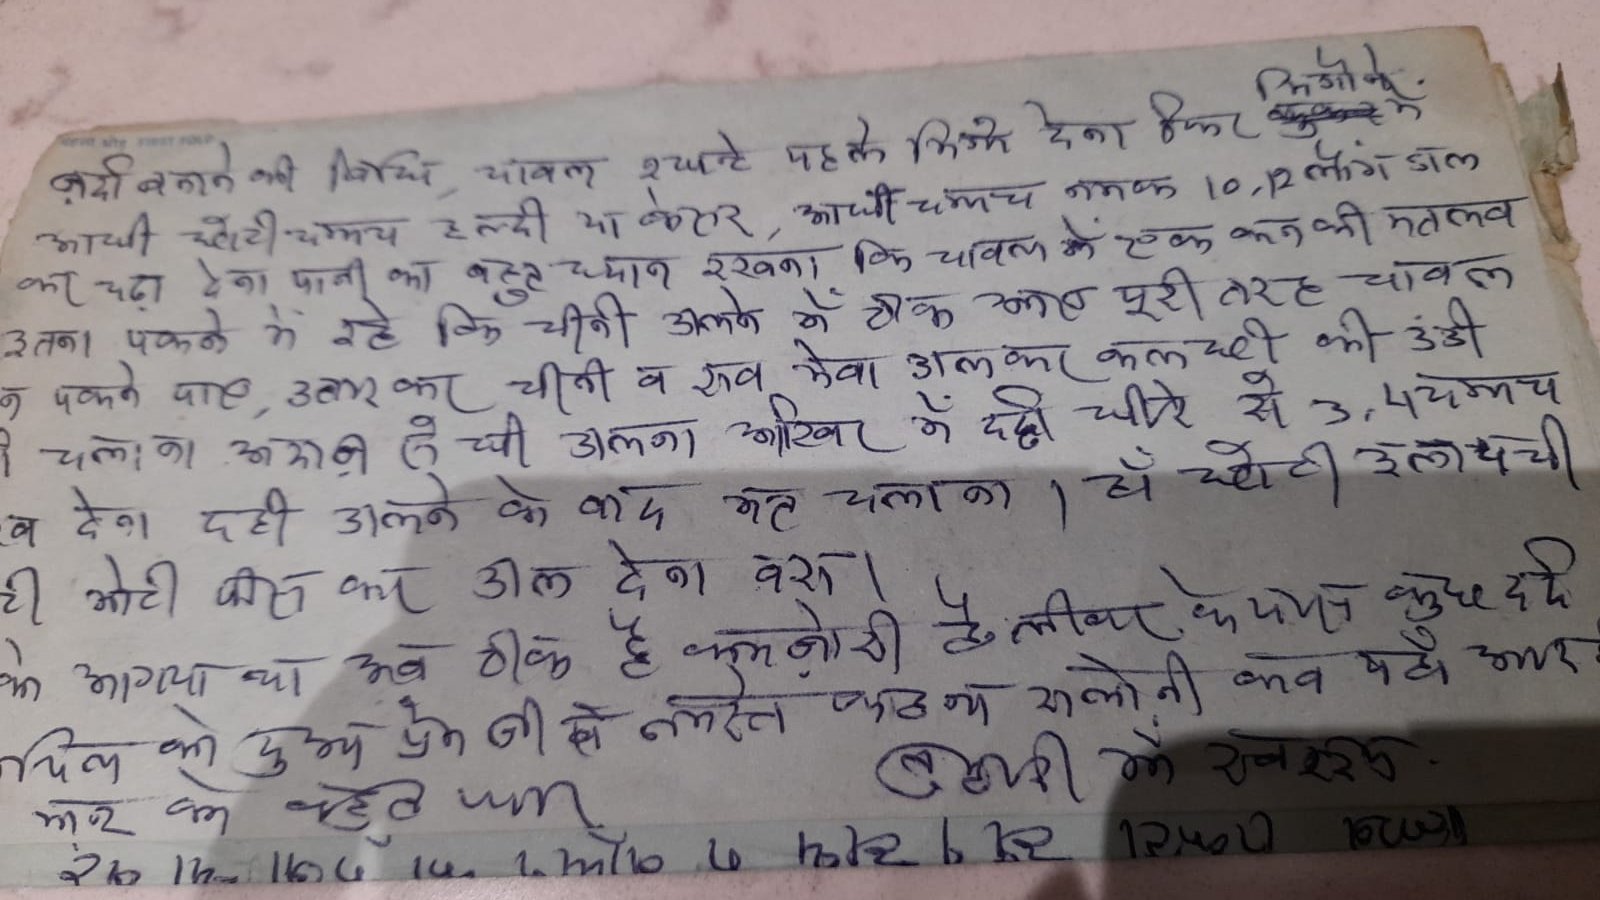 FIRST FOLD
भिगोके.
ज़र्दा बनाने की विधि, चावल २ घन्टे पहले भिगो देना फिर में
आधी छोटी चम्मच हल्दी या केसर, आधी चम्मच नमक 10,12 लौंग डाल
कर चढ़ा देना पानी का बहुत ध्यान रखना कि चावल में एक कन की मतलब
इतना पकने में रहे कि चीनी डालने में ठीक आए पूरी तरह चावल
न पकने पाए, उतार कर चीनी व सब मेवा डालकर कलछी की डंडी
चलाना आसान है घी डालना आखिर में दही धीरे से 3,4 चम्मच
देना दही डालने के बाद मत चलाना । हाँ छोटी इलायची
मोटी पीस कर डाल देना बस ।
आगया था अब ठीक है कमज़ोरी है लीवर के पास कुछ दर्द
को दुआ प्रेम जी को नमस्ते कहना सलोनी कब यहाँ आ
को बहुत प्यार तुम्हारी माँ